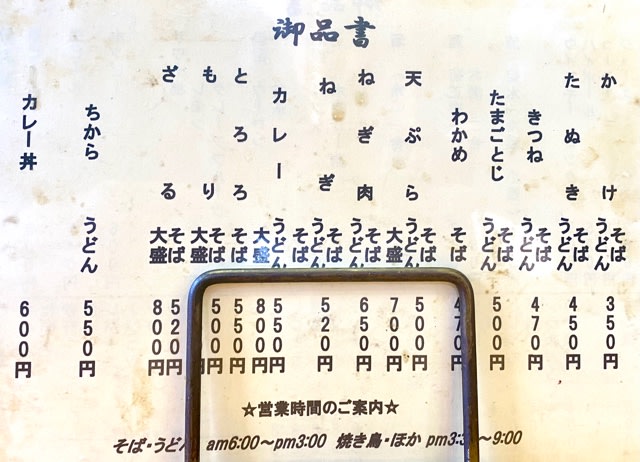 御品書
かけ そば うどん 350円
たぬき そば うどん 450円
きつね そば うどん 470円
たまごとじ そば うどん 500円
わかめ そば 470円
天ぷら そば うどん 500円 大盛 700円
ねぎ肉 そば うどん 650円
ねぎ そば うどん 520円
カレー そば うどん 550円 大盛 800円
とろろ そば 550円
もり そば 500円 大盛
ざる そば 520円 大盛 800円
ちから うどん 550円
カレー丼 600円
☆営業時間のご案内☆
そば・うどん am6:00～pm3:00 焼き鳥・ほか pm3:3 ～9:00